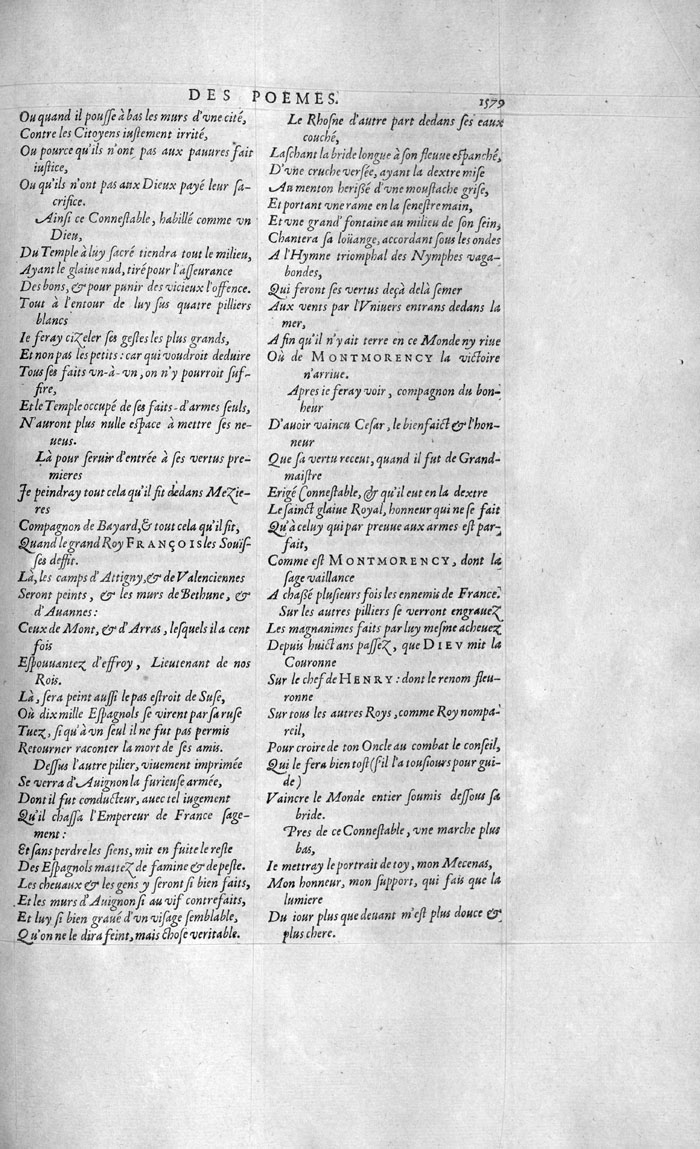 DES POËMES.
1579
Ou quand il pousse à bas les murs d'vne cité,
Contre les Citoyens iustement irrité,
Ou pource qu'ils n'ont pas aux pauures fait
iustice,
Ou qu'ils n'ont pas aux Dieux payé leur sa-
crifice.
Ainsi ce Connestable, habillé comme vn
Dieu,
Du Temple à luy sacré tiendra tout le milieu,
Ayant le glaiue nud, tiré pour l'asseurance
Des bons, & pour punir des vicieux l'offence.
Tout à l'entour de luy sus quatre pilliers
blancs
Ie feray cizeler ses gestes les plus grands,
Et non pas les petits : car qui voudroit deduire
Tous ses faits vn-à-vn, on n'y pourroit suf-
fire,
Et le Temple occupé de ses faits-d'armes seuls,
N'auront plus nulle espace à mettre ses ne-
ueus.
Là pour seruir d'entrée à ses vertus pre-
mieres
Je peindray tout cela qu'il fit dedans Mezie-
res
Compagnon de Bayard, & tout cela qu'il fit,
Quand le grand Roy FRANÇOIS les Souïs-
ses deffit.
Là, les camps d'Attigny, & de Valenciennes
Seront peints, & les murs de Bethune, &
d'Auannes :
Ceux de Mont, & d'Arras, lesquels il a cent
fois
Espouuantez d'effroy, Lieutenant de nos
Rois.
Là, sera peint aussi le pas estroit de Suse,
Où dix mille Espagnols se virent par sa ruse
Tuez, si qu'à vn seul il ne fut pas permis
Retourner raconter la mort de ses amis.
Dessus l'autre pilier, viuement imprimée
Se verra d'Auignon la furieuse armée,
Dont il fut conducteur, auec tel iugement
Qu'il chassa l'Empereur de France sage-
ment :
Et sans perdre les siens, mit en fuite le reste
Des Espagnols mattez de famine & de peste.
Les cheuaux & les gens y seront si bien faits,
Et les murs d'Auignon si au vif contrefaits,
Et luy si bien graué d'vn visage semblable,
Qu'on ne le dira feint, mais chose veritable.
Le Rhosne d'autre part dedans ses eaux
couché,
Laschant la bride longue à son fleuue espanché,
D'vne cruche versée, ayant la dextre mise
Au menton herißé d'vne moustache grise,
Et portant vne rame en la senestre main,
Et vne grand' fontaine au milieu de son sein,
Chantera sa loüange, accordant sous les ondes
A l'Hymne triomphal des Nymphes vaga-
bondes,
Qui feront ses vertus deçà delà semer
Aux vents par l'Vniuers entrans dedans la
mer,
A fin qu'il n'y ait terre en ce Monde ny riue
Où de MONTMORENCY la victoire
n'arriue.
Apres ie feray voir, compagnon du bon-
heur
D'auoir vaincu Cesar, le bienfaict & l'hon-
neur
Que sa vertu receut, quand il fut de Grand-
maistre
Erigé Connestable, & qu'il eut en la dextre
Le sainct glaiue Royal, honneur qui ne se fait
Qu'à celuy qui par preuue aux armes est par-
fait,
Comme est MONTMORENCY, dont la
sage vaillance
A chaßé plusieurs fois les ennemis de France.
Sur les autres pilliers se verront engrauez
Les magnanimes faits par luy mesme acheuez
Depuis huict ans passez, que DIEV mit la
Couronne
Sur le chef de HENRY : dont le renom fleu-
ronne
Sur tous les autres Roys, comme Roy nompa-
reil,
Pour croire de ton Oncle au combat le conseil,
Qui le fera bien tost (s'il l'a tousiours pour gui-
de)
Vaincre le Monde entier soumis dessous sa
bride.
Pres de ce Connestable, vne marche plus
bas,
Ie mettray le portrait de toy, mon Mecenas,
Mon honneur, mon support, qui fais que la
lumiere
Du iour plus que deuant m'est plus douce &
plus chere.